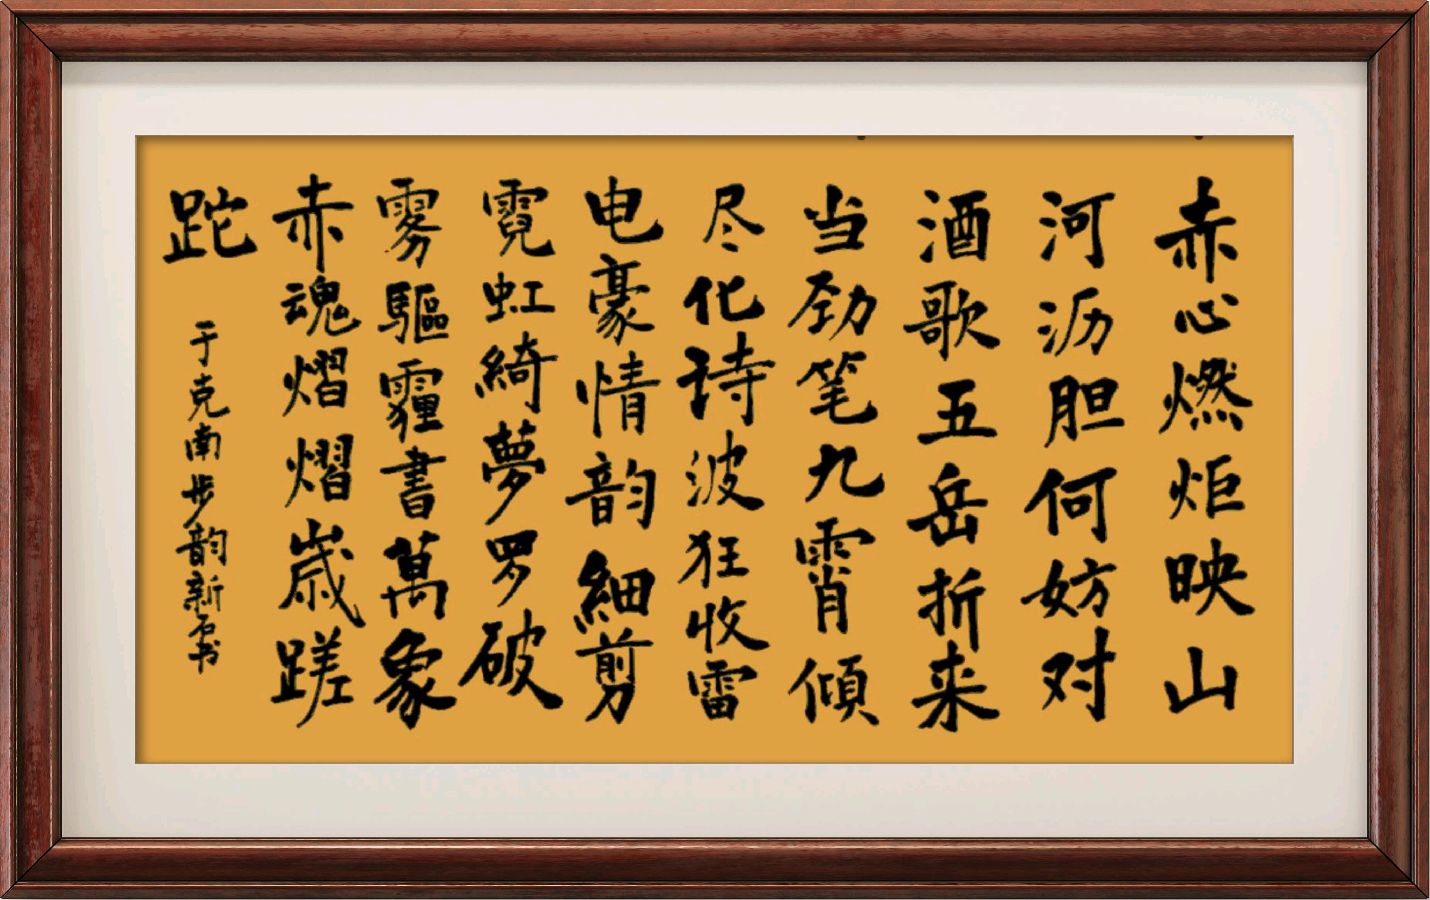 赤心燃炬映山
河沥胆何妨对
酒歌五岳折来
当劲笔九霄傾
尽化诗波狂收雷
电豪情韵细剪
霓虹綺夢罗破
雾驅霾書萬象
赤魂熠熠歲蹉
跎
于克南步韵新石书